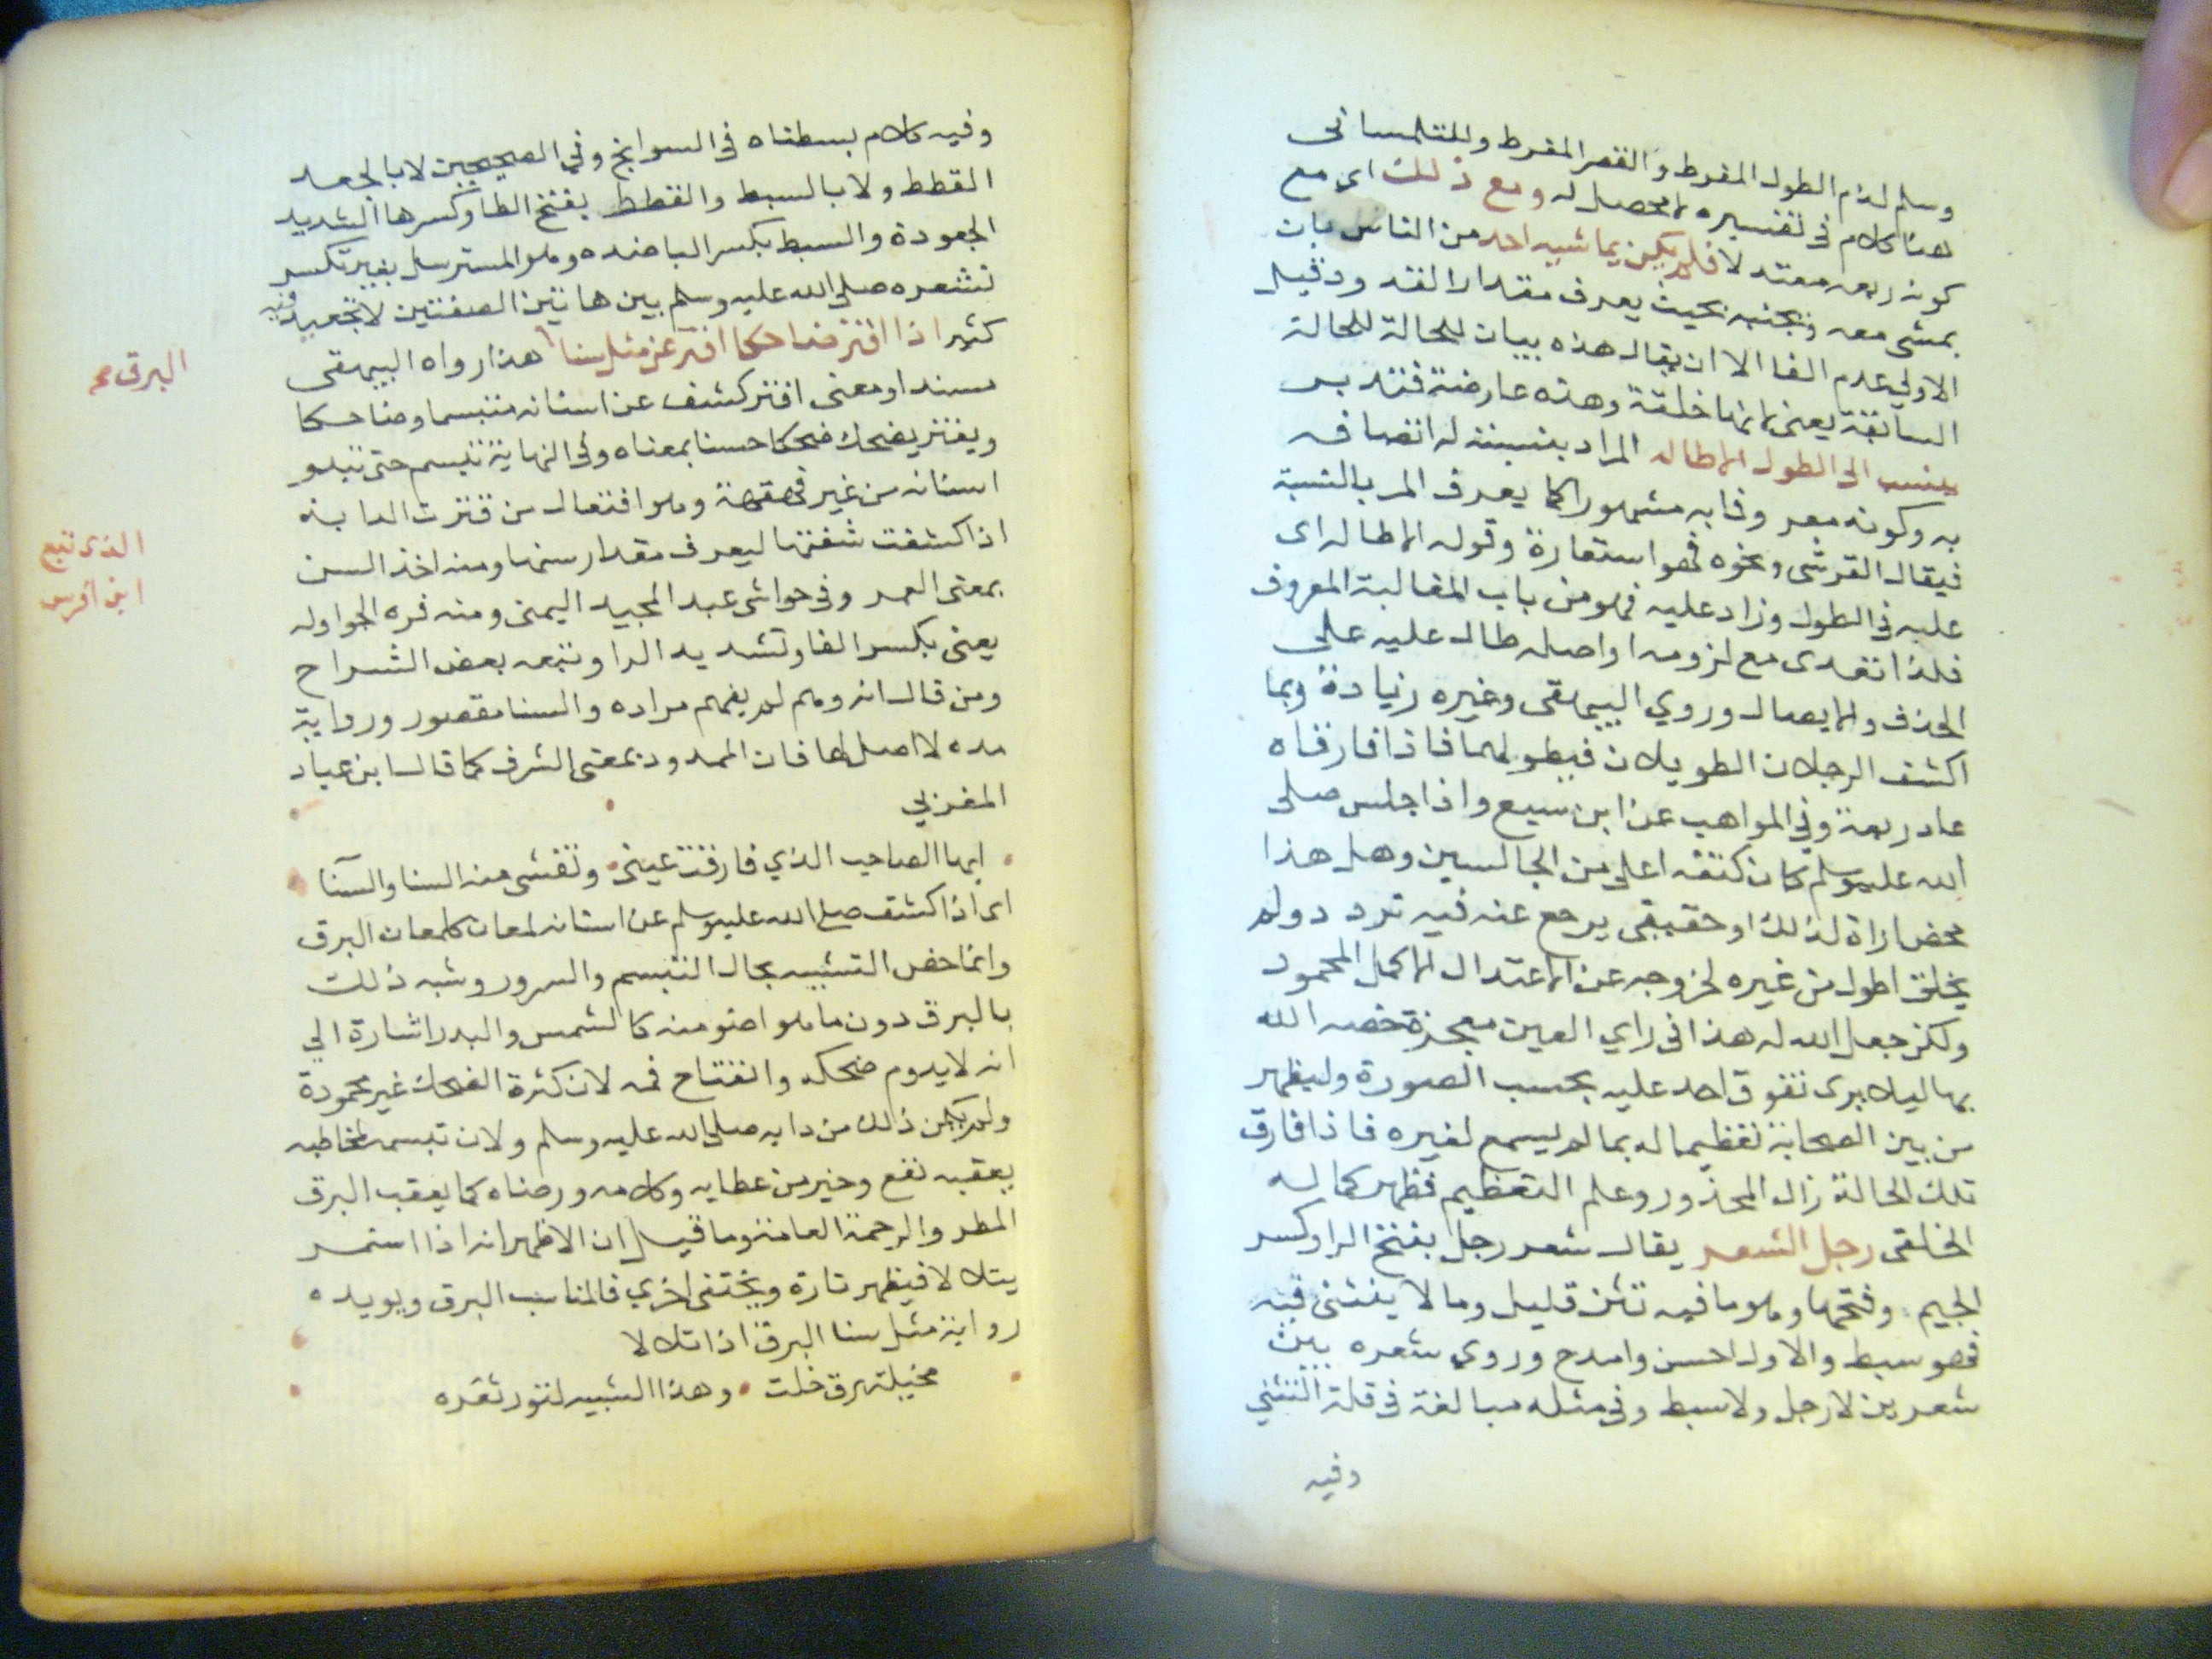 وسلم لذم الطول المفرط والقصر المفرط وللتلمسانى
هنا كلام فى تفسيره لا محصل له ومع ذلك اى مع
كونه ربعه معتدلا فلم يكن يماشيه احد من الناس بان
يمشى معه وبجنبه بحيث يعرف مقدار القد ودقيل
الاولى عدم الفا الا ان يقال هذه بيان للحالة للحالة
السابقة يعنى لانها خلقة وهذه عارضة فتدبر
ينسب الى الطول الاطاله المراد بنسبته له اتصافه
به وكونه معروفا به مشهورا كما يعرف المر بالنسبة
فيقال القرشى ونحوه فهو استعارة وقوله الاطاله اى
علبه فى الطول وزاد عليه فهو من باب المغالبة المعروف
فلذا تعدى مع لزومه او اصله طال عليه على
الحذف والايصال وروي البيهقى وغيره زيادة وبما
اكتنف الرجلان الطويلان فيطولهما فاذا فارقاه
عاد ربعة وفي المواهب عن ابن سبع واذا جلس صلى
الله عليه وسلم كان كتفه اعلى من الجالسين وهل هذا
محض اراة لذلك او حقيقى يرجع عنه فيه تردد ولم
يخلق اطول من غيره لخروجه عن الاعتدال الاكمل المحمود
ولكن جعل الله له هذا فى راي العين معجزة خصه الله
بها ليلا يرى تفوق احد عليه بحسب الصورة وليظهر
من بين الصحابة تعظيما له بما لم يسمع لغيره فاذا فارق
تلك الحالة زال المحذور وعلم التعظيم فظهر كماله
الخلقى رجل الشعر يقال شعر رجل بفتخ الرا وكسر
الجيم وفتحها وهو ما فيه تثن قليل وما لا يتثنى فيه
فهو سبط والاول احسن وامدح وروي شعره بين
شعرين لا رجل ولا سبط وفى مثله مبالغة فى قلة التثني
وفيه
وفيه كلام بسطناه فى السوانح وفى الصحيحين لا بالجعد
القطط ولا بالسبط والقطط بفتح الطا وكسرها الشديد
الجعودة والسبط بكسر البا ضده وهو المسترسل بغير تكسر
فشعره صلى الله عليه وسلم بين هاتين الصفتين لا تجعيد فيه
كثير اذا افتر ضاحكا افتر عن مثل سنا هذا رواه البيهقى
البرق صح
مسندا ومعنى افتر كشف عن اسنانه متبسما وضاحكا
ويفتر يضحك ضحكا حسنا بمعناه وفى النهاية تبسم حتى تبدو
اسنانه من غير قهقهة وهو افتعال من فررت الدابة
اذا كشفت شفتها ليعرف مقدار سنها ومنه اخذ السن
بمعنى العمر وفى حواشى عبد المجيد اليمنى ومنه فره الجواوله
الذى تبع
ابن اقرس
يعنى بكسر الفا وتشديد الرا وتبعه بعض الشراح
ومن قال انه وهم لم يفهم مراده والسنا مقصور ورواية
مده لا اصل لها فان الممدود بمعنى الشرف كما قال ابن عباد
المغربي
ايها الصاحب الذي فارقت عينى وتفشى منه السنا والسنا
اى اذا كشف صلى الله عليه وسلم عن اسنانه لمعان كلمعان البرق
وانما خص التشبيه بحال التبسم والسرور وشبه ذلك
بالبرق دون ما هو اضو منه كالشمس والبدر اشارة الي
انه لا يدوم ضحكه وانفتاح فمه لان كثرة الضحك غير محمودة
ولم يكن ذلك من دابه صلى الله عليه وسلم ولان تبسمه لمخاطبه
يعقبه نفع وخير من عطايه وكلامه ورضاه كما يعقب البرق
المطر والرحمة العامة وما قيل ان الاظهر انه اذا استمر
يتلالا فيظهر تارة ويختفى اخري فالمناسب البرق ويويده
رواية مثل سنا البرق اذا تلالا
مخيلته برق خلت وهذا التشبيه لنور ثغره